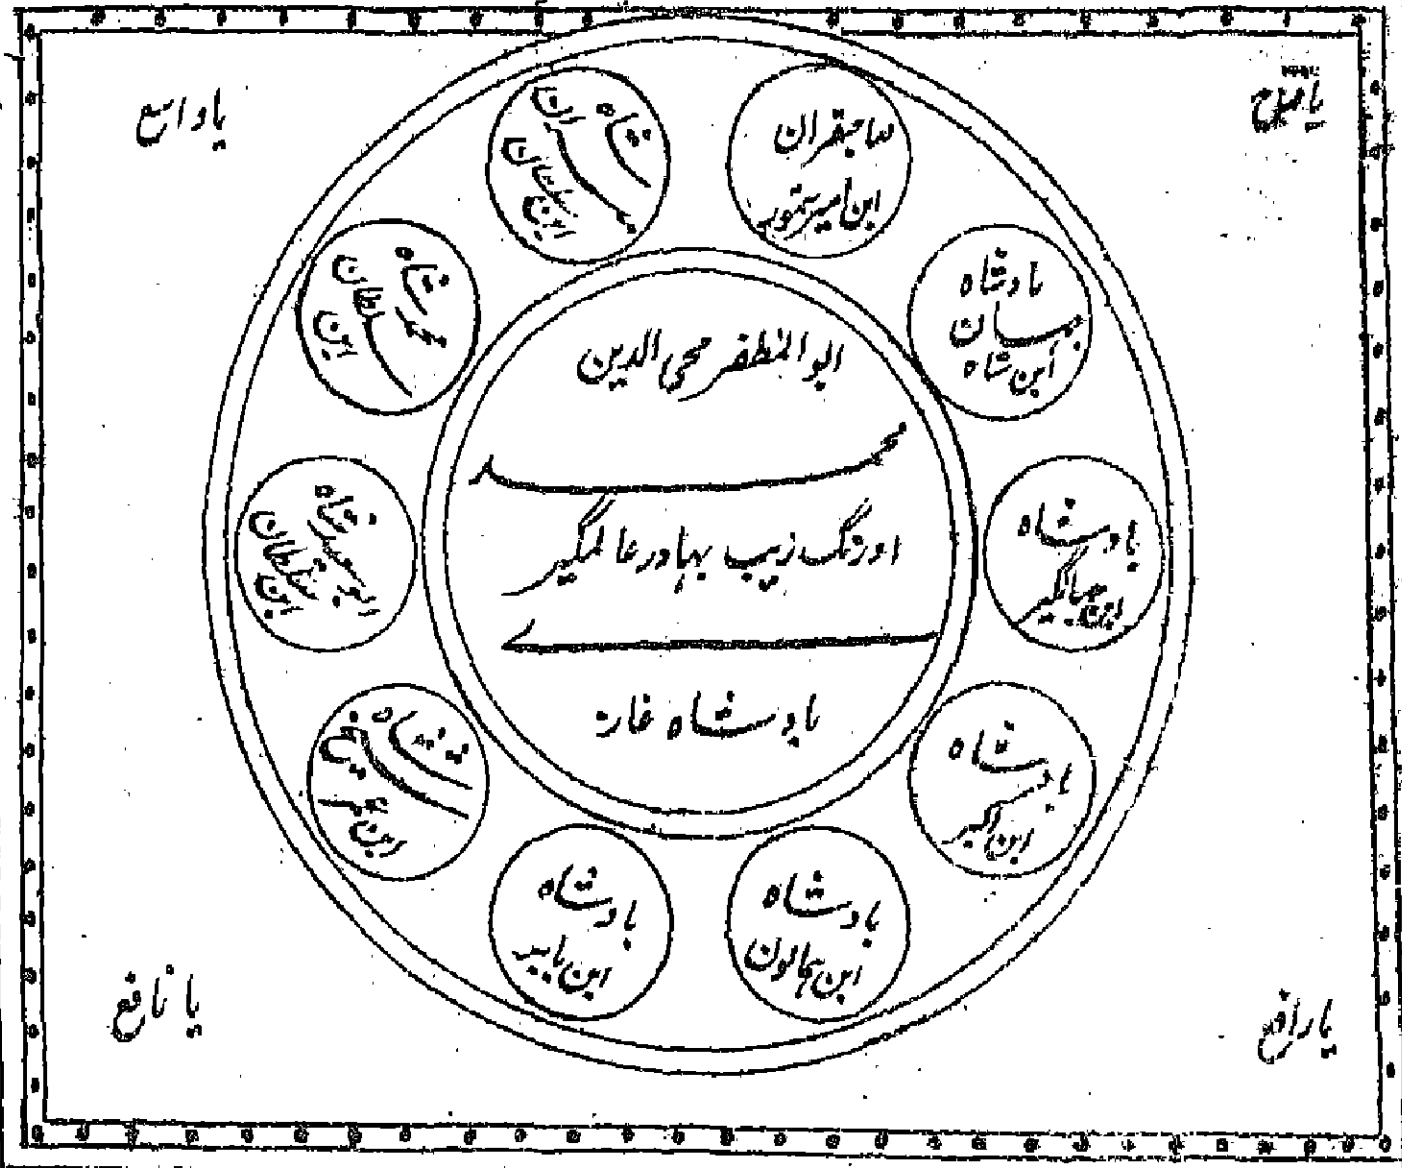 یا فتاح
یا واسع
ابو المظفر محی الدین
محمد
اورنگ زیب بہادر عالمگیر
بادشاہ غازے
صاحبقران
ابن امیر تیمور
بادشاہ
جہان
ابن شاہ
بادشاہ
ابن جہانگیر
بادشاہ
ابن اکبر
بادشاہ
ابن ہمایون
بادشاہ
ابن بابر
شاہ
شیخ
ابن عمر
شاہ
ابو سعید
سلطان
ابن
شاہ
محمد
سلطان
ابن
شاہ
میران
سلطان
ابن
یا رافع
یا نافع